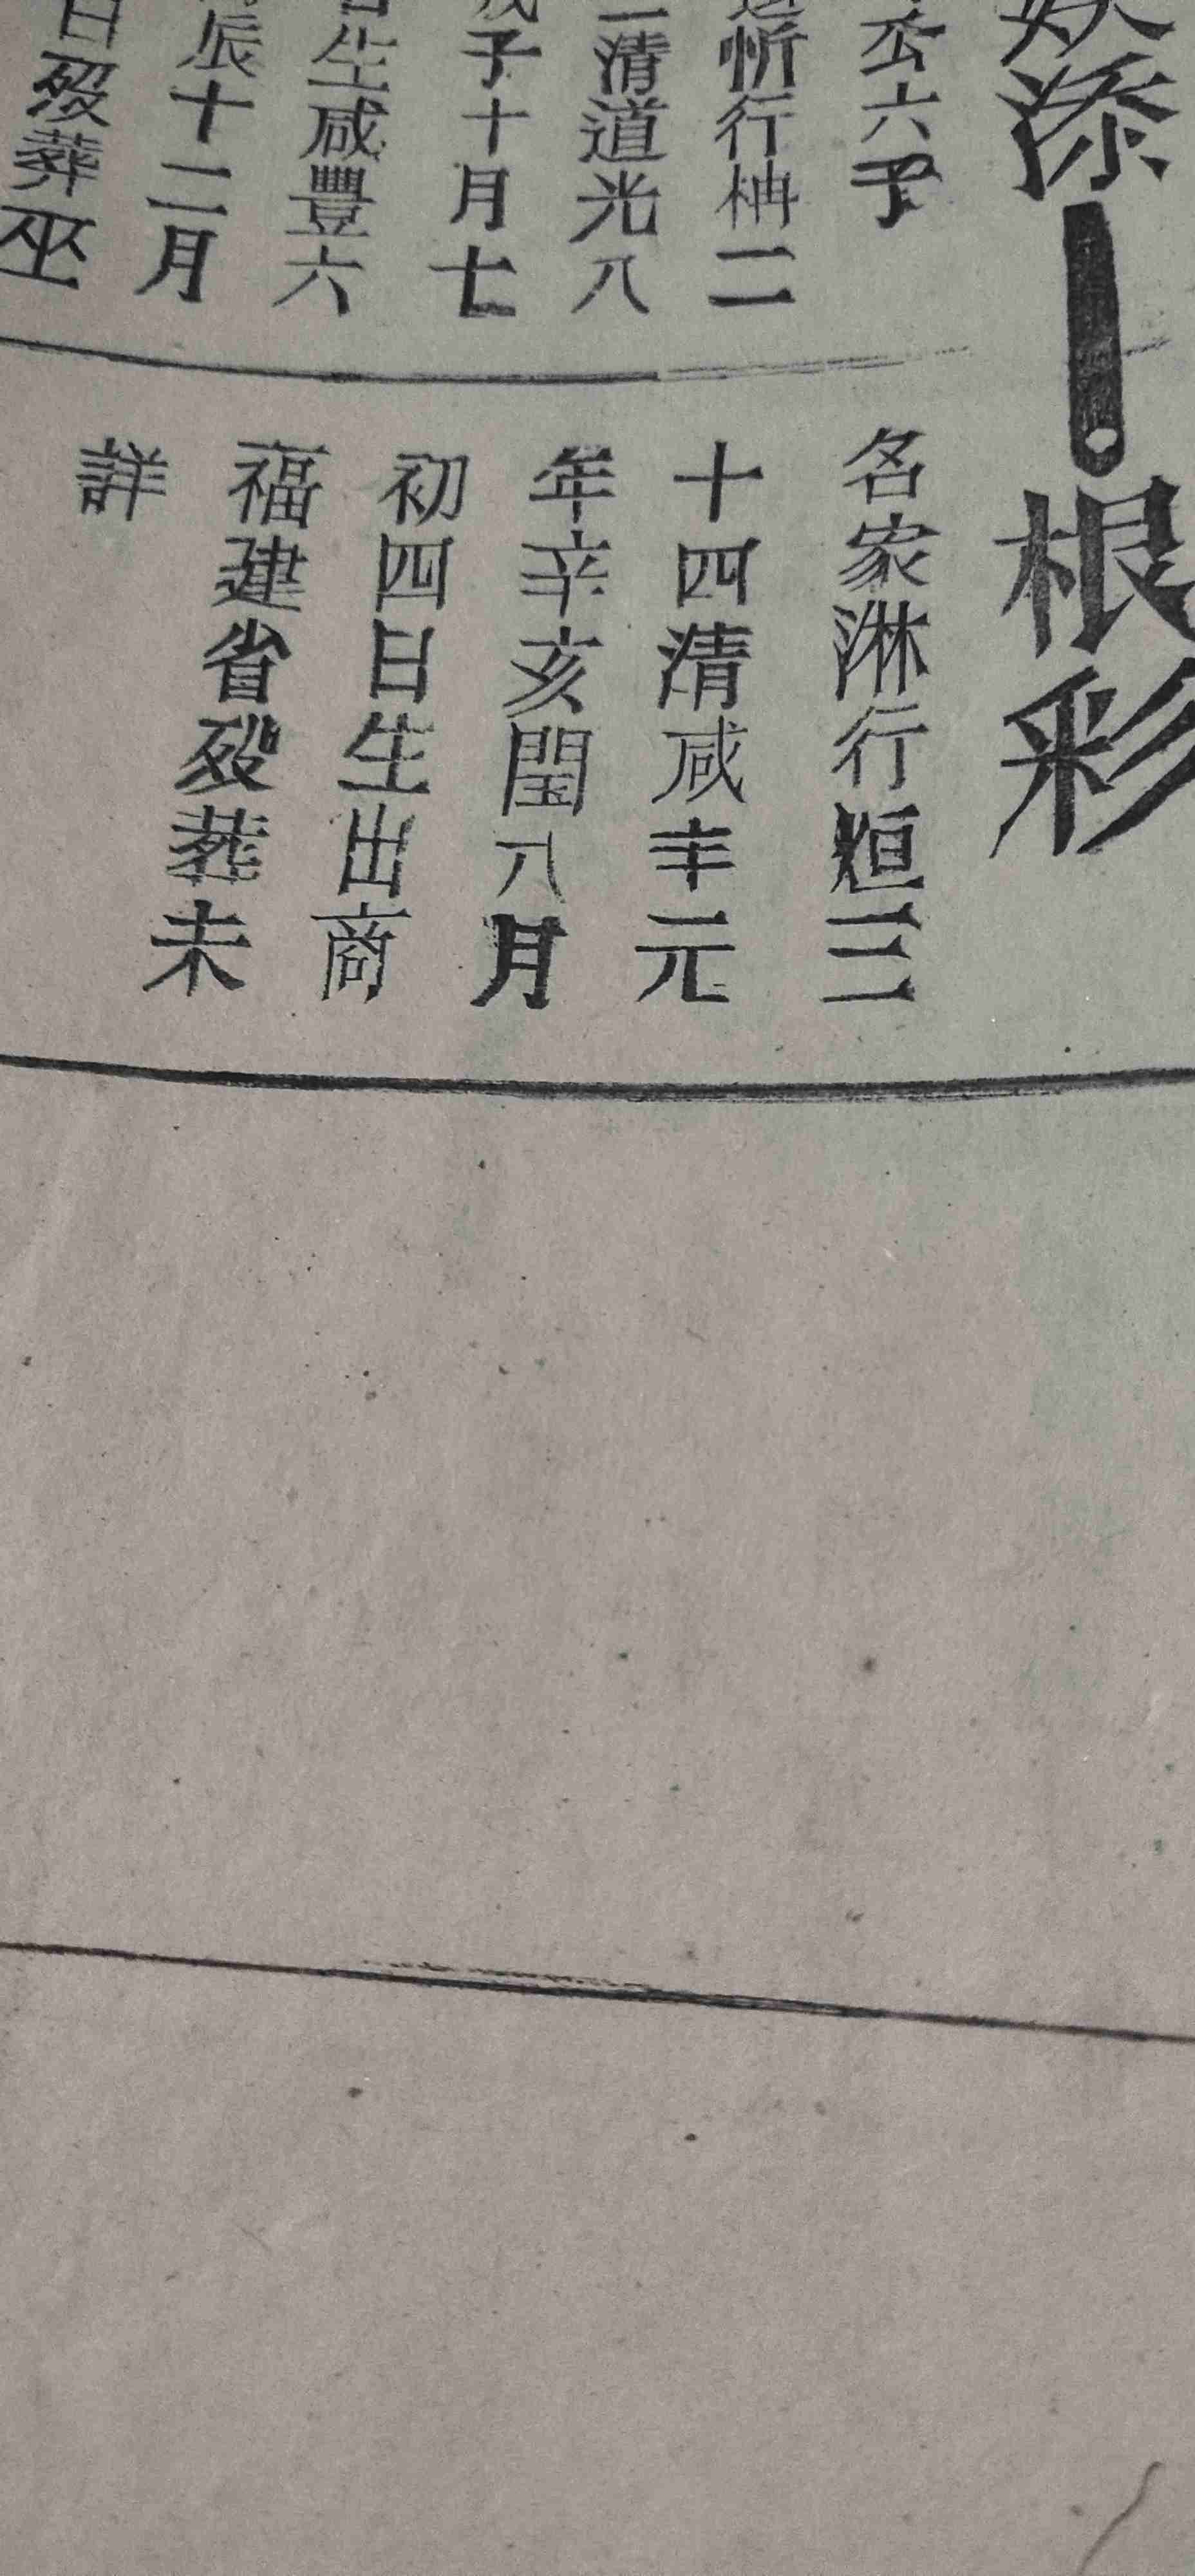 添
厺六子
忻行柟二
清道光八
子十月七
生咸豐六
辰十二月
日歿葬巫
根彩
名家淋行烜三
十四清咸丰元
年辛亥閏八月
初四日生出商
福建省歿葬未
詳